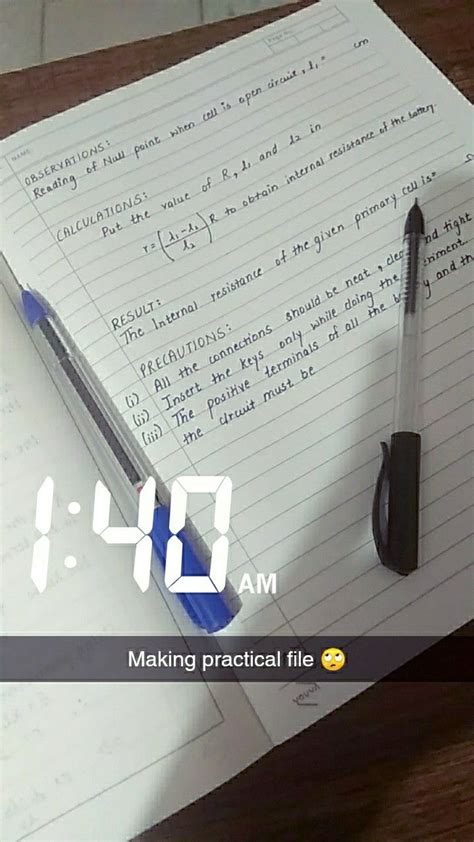 Page No.
NAME:
OBSERVATIONS:
Reading of Null point when cell is open circuit, l₁ = cm
CALCULATIONS:
Put the value of R, l₁ and l₂ in
r = (l₁ - l₂ / l₂) R to obtain internal resistance of the battery.
RESULT:
The Internal resistance of the given primary cell is =
PRECAUTIONS:
(i) All the connections should be neat, and tight
(ii) Insert the keys only while doing the
(iii) The positive terminals of all the and
the circuit must be
1:40 AM
Making practical file 🙄